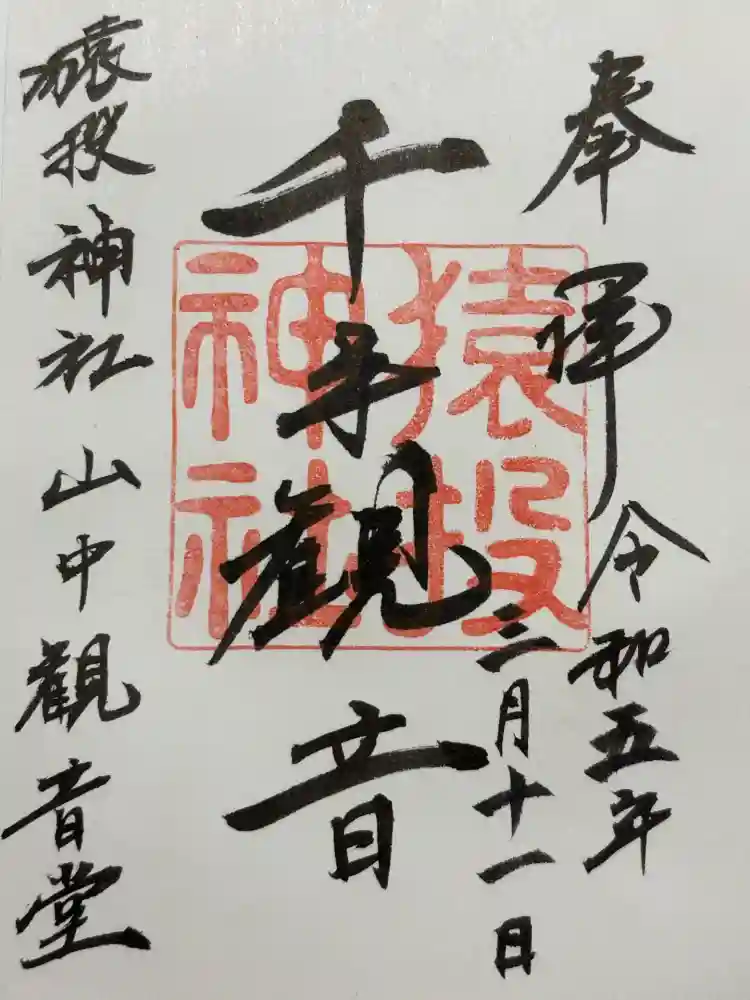 奉拝
令和五年
三月十一日
千手觀音
猿投神社山中觀音堂
猿投
神社